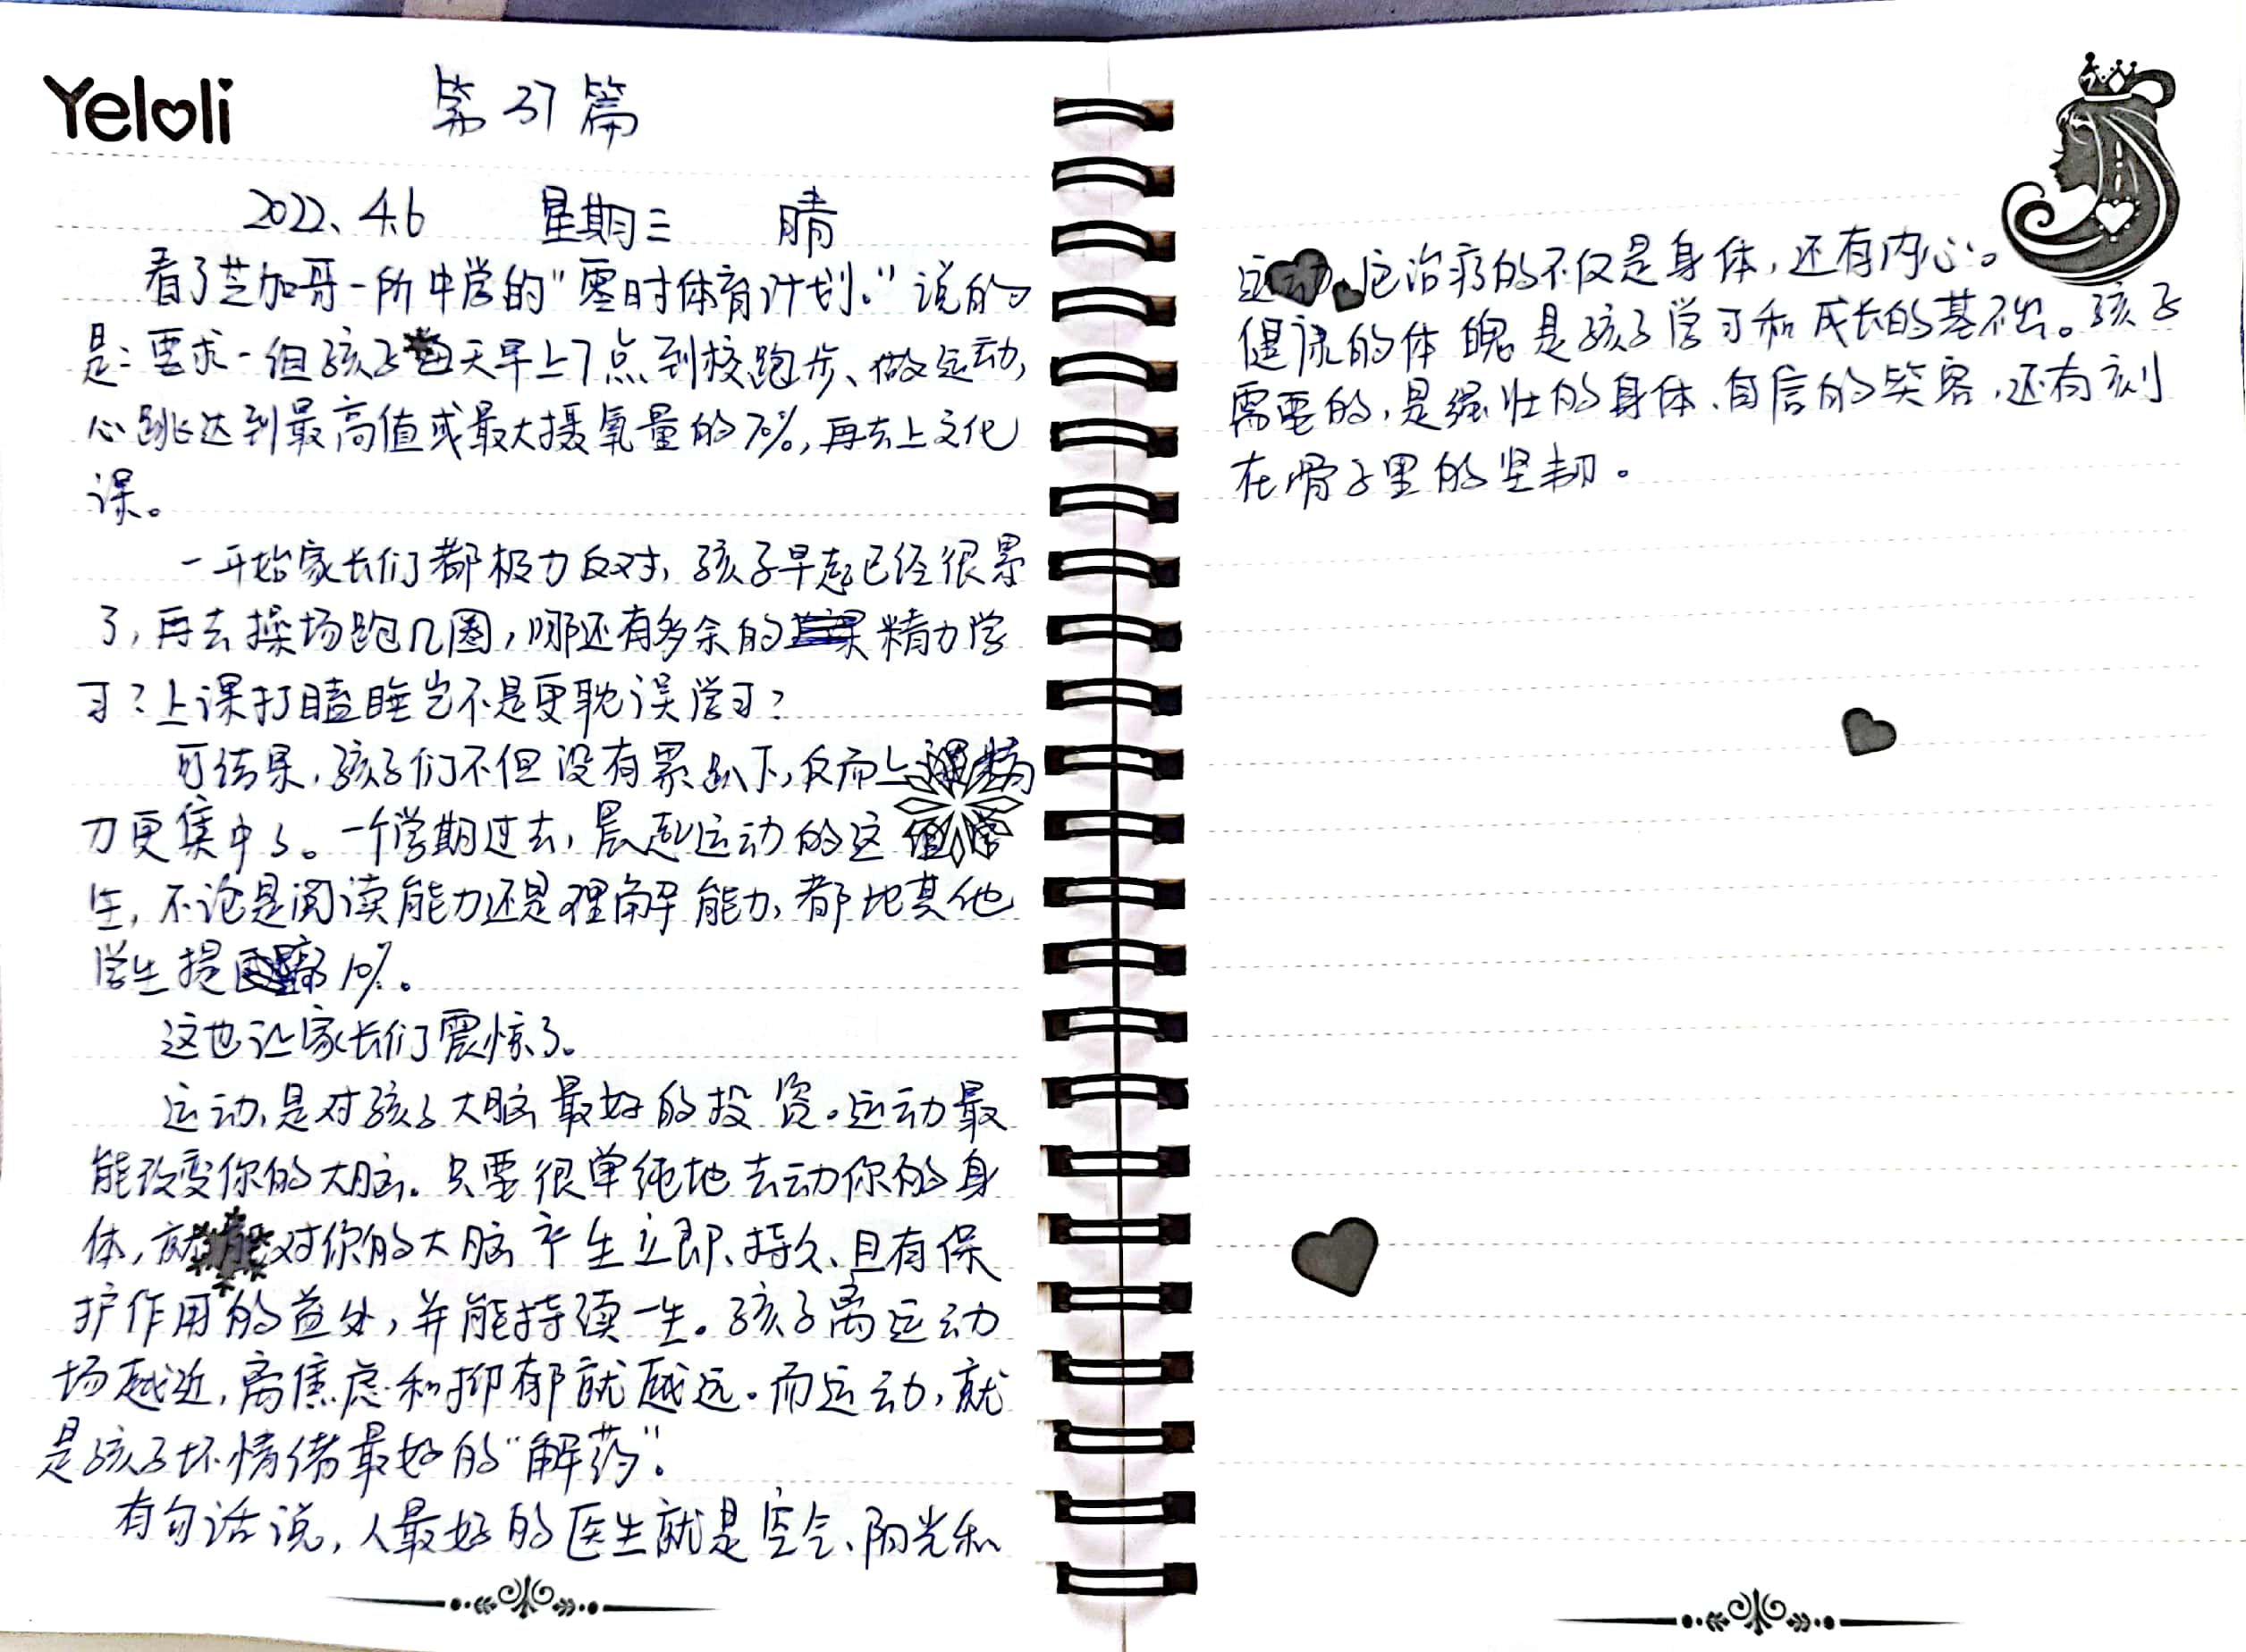 Yeloli
第37篇
2022、4.6 星期三 晴
看了芝加哥一所中学的“零时体育计划。”说的
是：要求一组孩子每天早上7点到校跑步、做运动，
心跳达到最高值或最大摄氧量的70%，再去上文化
课。
一开始家长们都极力反对，孩子早起已经很累
了，再去操场跑几圈，哪还有多余的精力学
习？上课打瞌睡岂不是更耽误学习？
可结果，孩子们不但没有累趴下，反而上课精
力更集中了。一个学期过去，晨起运动的这
生，不论是阅读能力还是理解能力，都比其他
学生提 10%。
这也让家长们震惊了。
运动，是对孩子大脑最好的投资。运动最
能改变你的大脑。只要很单纯地去动你的身
体，就能对你的大脑产生立即、持久、且有保
护作用的益处，并能持续一生。孩子离运动
场越近，离焦虑和抑郁就越远。而运动，就
是孩子坏情绪最好的“解药”。
有句话说，人最好的医生就是空气、阳光和
运动，它治疗的不仅是身体，还有内心。
健康的体魄是孩子学习和成长的基础。孩子
需要的，是强壮的身体、自信的笑容，还有刻
在骨子里的坚韧。